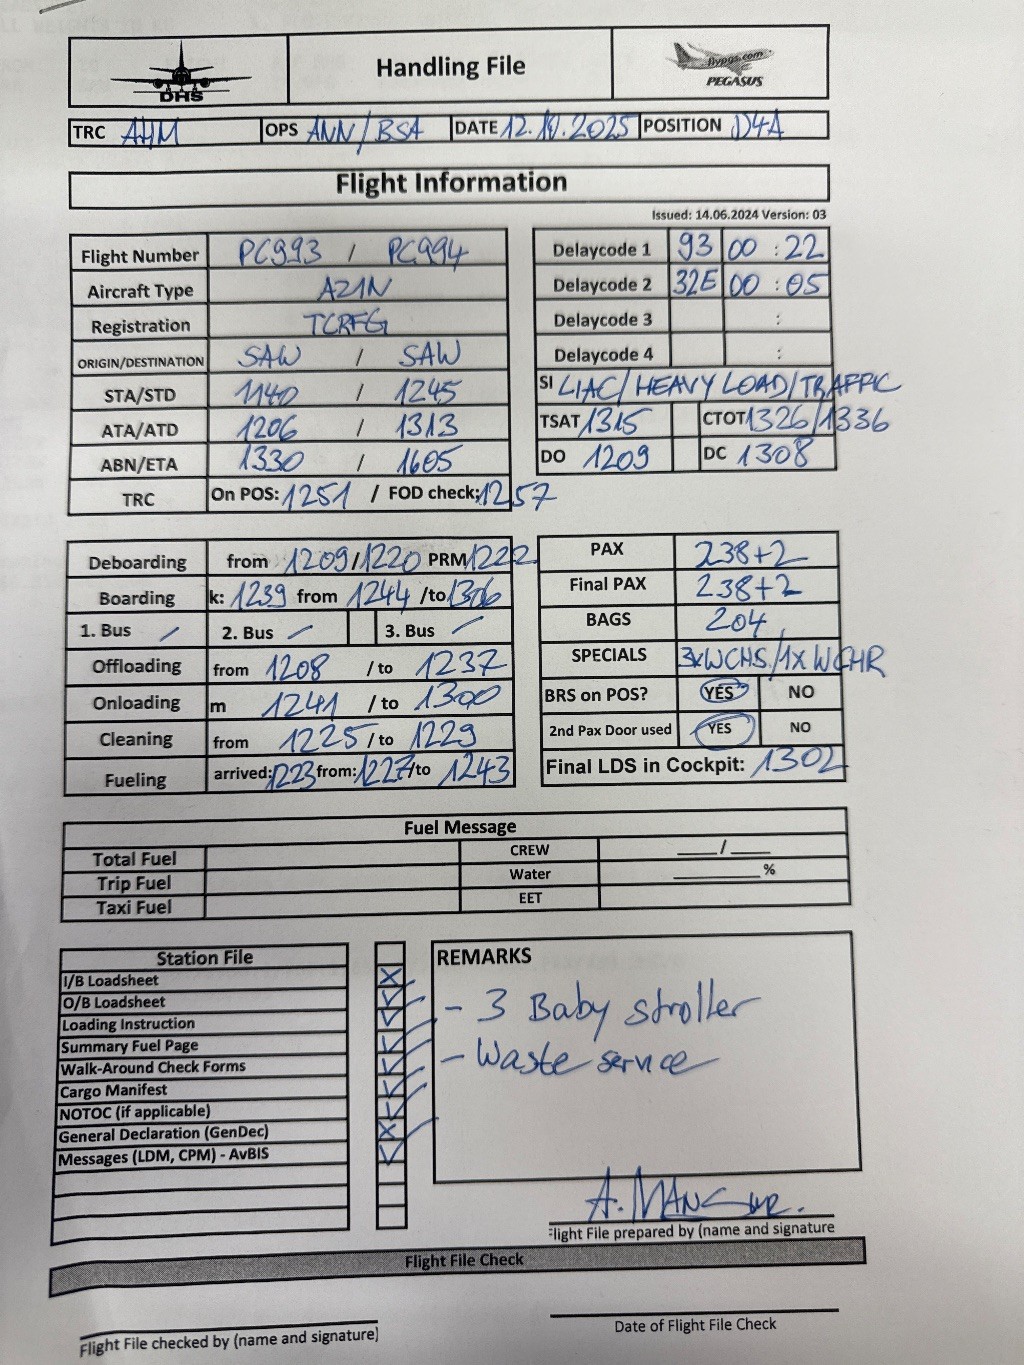 DHS
Handling File
flypgs.com
PEGASUS
TRC AHM OPS ANN/BSA DATE 12.10.2025 POSITION D4A
Flight Information
Issued: 14.06.2024 Version: 03
Flight Number PC993 / PC994
Aircraft Type A21N
Registration TCRFG
ORIGIN/DESTINATION SAW / SAW
STA/STD 1140 / 1245
ATA/ATD 1206 / 1313
ABN/ETA 1330 / 1605
TRC On POS: 1251 / FOD check: 1257
Delaycode 1 93 00 : 22
Delaycode 2 32E 00 : 05
Delaycode 3 :
Delaycode 4 :
SI LIAC/HEAVY LOAD/TRAFFIC
TSAT 1315 CTOT 1326/1336
DO 1209 DC 1308
Deboarding from 1209/1220 PRM 1222
Boarding k: 1239 from 1244 /to 1306
1. Bus / 2. Bus / 3. Bus /
Offloading from 1208 / to 1237
Onloading m 1241 / to 1300
Cleaning from 1225 / to 1229
Fueling arrived: 1223 from: 1227/to 1243
PAX 238+2
Final PAX 238+2
BAGS 204
SPECIALS 3xWCHS/1xWCHR
BRS on POS? YES NO
2nd Pax Door used YES NO
Final LDS in Cockpit: 1302
Fuel Message
Total Fuel CREW ___/___
Trip Fuel Water ______%
Taxi Fuel EET
Station File
I/B Loadsheet
O/B Loadsheet
Loading Instruction
Summary Fuel Page
Walk-Around Check Forms
Cargo Manifest
NOTOC (if applicable)
General Declaration (GenDec)
Messages (LDM, CPM) - AvBIS
REMARKS
- 3 Baby stroller
- Waste service
A. MANSUR.
Flight File prepared by (name and signature
Flight File Check
Flight File checked by (name and signature)
Date of Flight File Check